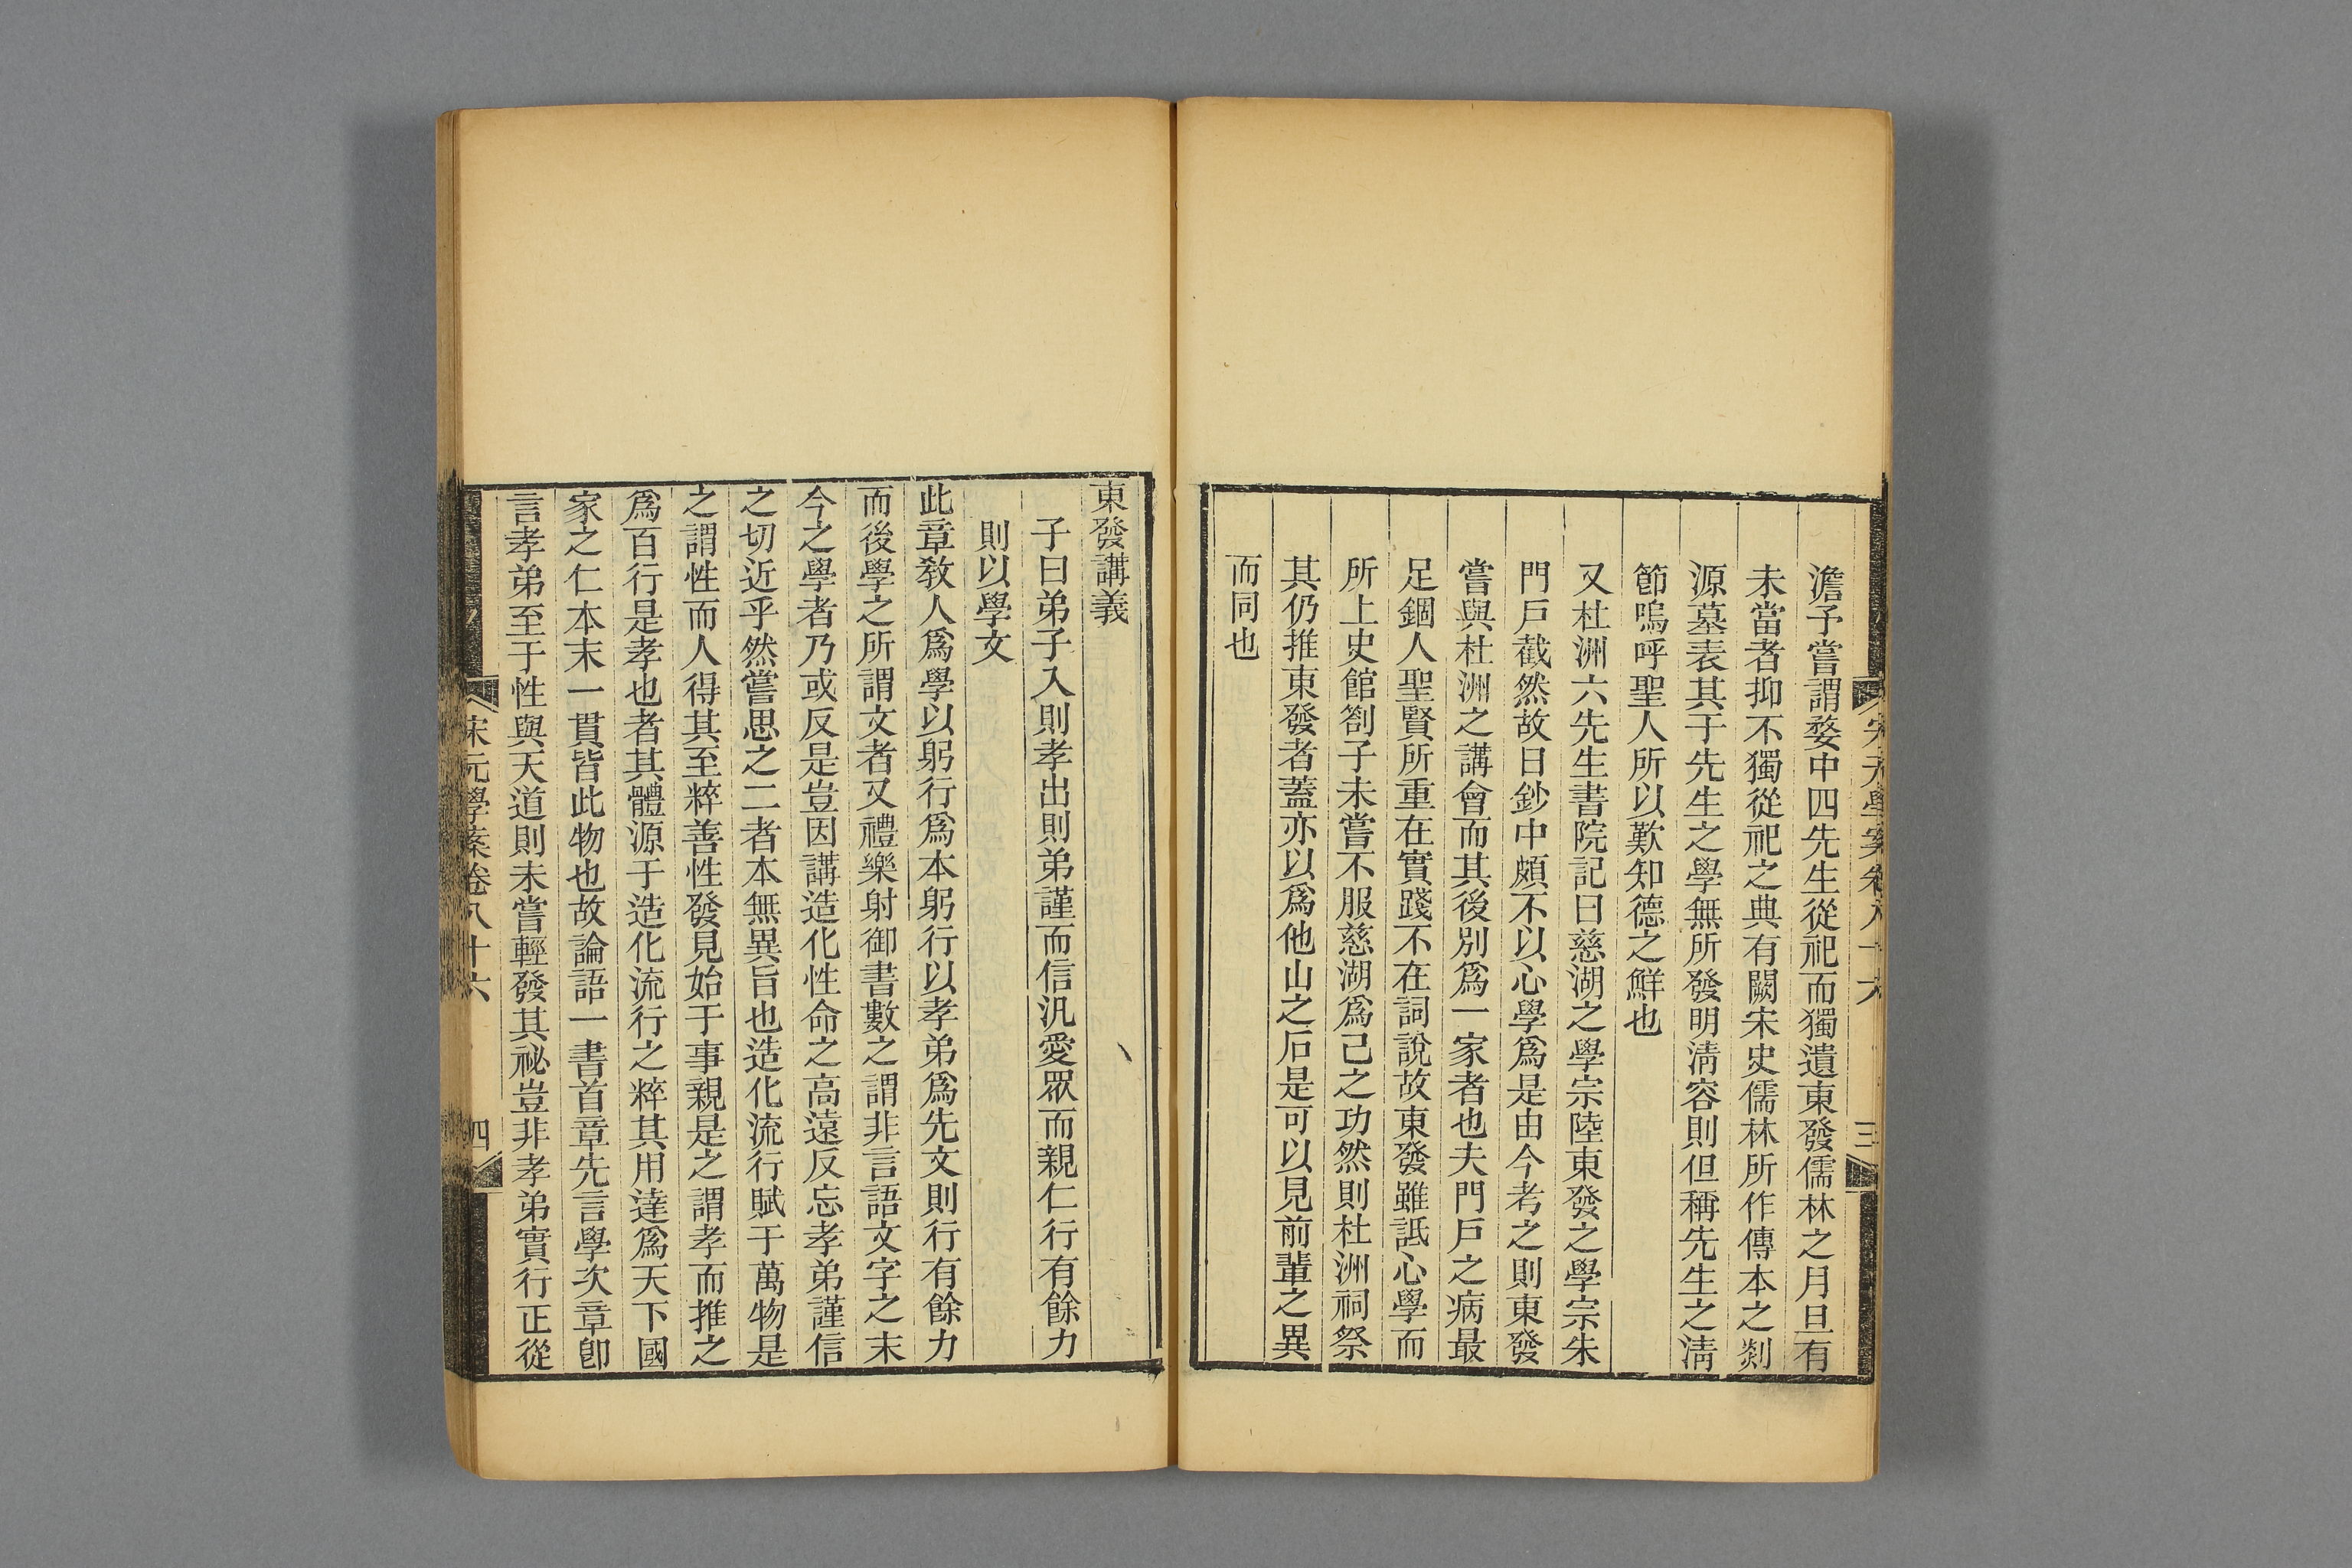 宋元學案卷八十六
三
澹予嘗謂婺中四先生從祀而獨遺東發儒林之月旦有
未當者抑不獨從祀之典有闕宋史儒林所作傳本之剡
源墓表其于先生之學無所發明淸容則但稱先生之淸
節嗚呼聖人所以歎知德之鮮也
又杜洲六先生書院記曰慈湖之學宗陸東發之學宗朱
門戶截然故日鈔中頗不以心學爲是由今考之則東發
嘗與杜洲之講會而其後別爲一家者也夫門戶之病最
足錮人聖賢所重在實踐不在詞說故東發雖詆心學而
所上史館劄子未嘗不服慈湖爲己之功然則杜洲祠祭
其仍推東發者蓋亦以爲他山之石是可以見前輩之異
而同也
東發講義
子曰弟子入則孝出則弟謹而信汎愛眾而親仁行有餘力
則以學文
此章敎人爲學以躬行爲本躬行以孝弟爲先文則行有餘力
而後學之所謂文者又禮樂射御書數之謂非言語文字之末
今之學者乃或反是豈因講造化性命之高遠反忘孝弟謹信
之切近乎然嘗思之二者本無異旨也造化流行賦于萬物是
之謂性而人得其至粹善性發見始于事親是之謂孝而推之
爲百行是孝也者其體源于造化流行之粹其用達爲天下國
家之仁本末一貫皆此物也故論語一書首章先言學次章卽
言孝弟至于性與天道則未嘗輕發其祕豈非孝弟實行正從
宋元學案卷八十六
四